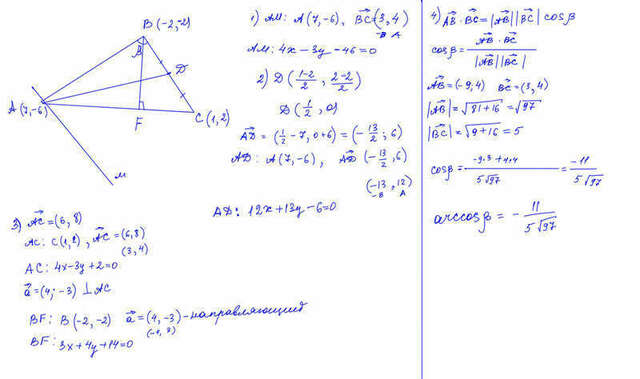 B (-2,-2)
B
D
A (7,-6)
F
C (1,2)
M
1) AM: A(7,-6), BC=(3,4)
-B A
AM: 4x-3y-46=0
2) D((1-2)/2, (2-2)/2)
D(1/2, 0)
AD = (1/2 - 7, 0+6) = (-13/2; 6)
AD: A(7,-6), AD(-13/2, 6)
(-13, 12)
-B A
AD: 12x+13y-6=0
3) AC=(6,8)
AC: C(1,2), AC=(6,8)
(3,4)
AC: 4x-3y+2=0
a=(4;-3) ⊥ AC
BF: B(-2,-2) a=(4,-3)-направляющий
BF: 3x+4y+14=0
4) AB · BC = |AB||BC| cosβ
cosβ = (AB · BC)/(|AB||BC|)
AB=(-9;4) BC=(3,4)
|AB| = √(81+16) = √97
|BC| = √(9+16) = 5
cosβ = (-9·3+4·4)/(5√97) = -11/(5√97)
arccosβ = - 11/(5√97)